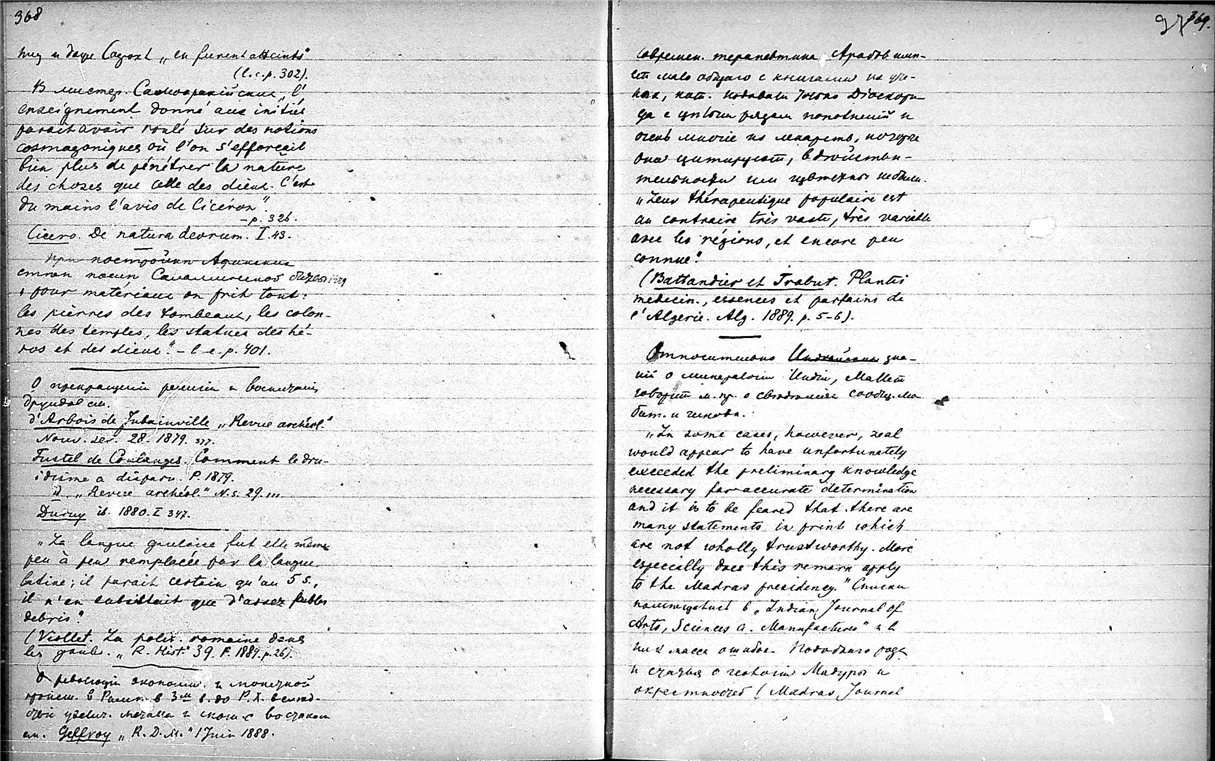 368
"en furent atteints"
(l.c.p. 302).
В мистер. Самофракийских, "l'
enseignement donné aux initiés
paraît avoir roulé sur des notions
cosmogoniques où l'on s'efforçait
bien plus de pénétrer la nature
des choses que celle des dieux. C'est
du moins l'avis de Cicéron".
– p. 326.
Cicero. De natura deorum. I. 43.
При постройки Афинских
стен после Саламинской
"pour matériaux on prit tout:
les pierres des tombeaux, les colon-
nes des temples, les statues des hé-
ros et des dieux". – l.c.p. 401.
О прекращении религии и
друидов см.
d'Arbois de Jubainville "Revue archéol."
Nouv. ser. 28. 1879.
Fustel de Coulanges. Comment le dru-
idisme a disparu. P. 1879.
"Revue archéol" N.s. 29.
Duruy ib. 1880. I 347.
"La langue gauloise fut elle même
peu à peu remplacée par la langue
latine; il parait certain qu'au 5 s.,
il n'en subsistait que d'assez faibles
debris".
(Viollet. La polit. romaine dans
les gaules. "R. Hist." 39. P. 1889. p. 26).
О революции экономич. и
в 3м в. до Р.Х.
см. Geffroy "R.D.M." 1 Juin 1888.
369.
современ. терапевтика Арабов име-
ет мало общаго с книгами
с целым рядом пополнений и
очень многие из лекарств, которые
они цитируют, в действи-
тельности им
"Leur thérapeutique populaire est
au contraire très vaste, très variable
avec les régions, et encore peu
connue".
(Battandier et Trabut. Plantes
médecin., essences et parfums de
l'Algerie. Alg. 1889. p. 5-6).
Относительно зна-
ний о минералогии Индии, Маллет
говорит м. пр. о
"In some cases, however, zeal
would appear to have unfortunately
exceeded the preliminary knowledge
necessary for accurate determination
and it is to be feared that there are
many statements in print which
are not wholly trustworthy. More
especially does this remark apply
to the Madras presidency." Списки
в "Indian Journal of
Arts, Sciences a. Manufactures" и в
них масса ошибок. Подобного рода
и статья о геологии Мадуры и
окрестностей (Madras Journal